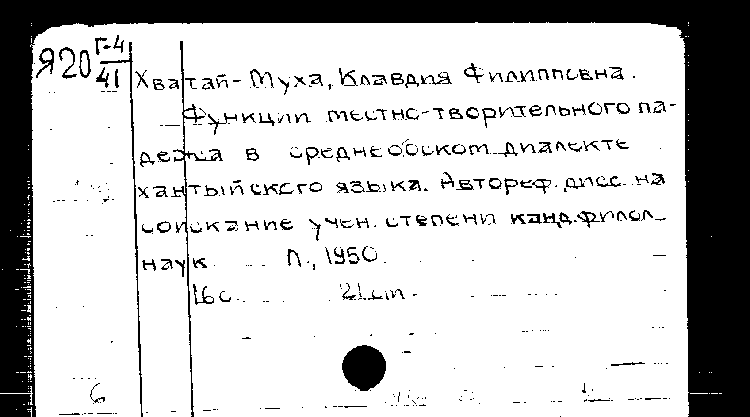 Я20 Г-4/41
Хватай-Муха, Клавдия Филипповна.
Функции местно-творительного па-
дежа в среднеобском диалекте
хантыйского языка. Автореф. дисс. на
соискание учен. степени канд. филол.
наук Л., 1950
16 с. 21 cm.
6